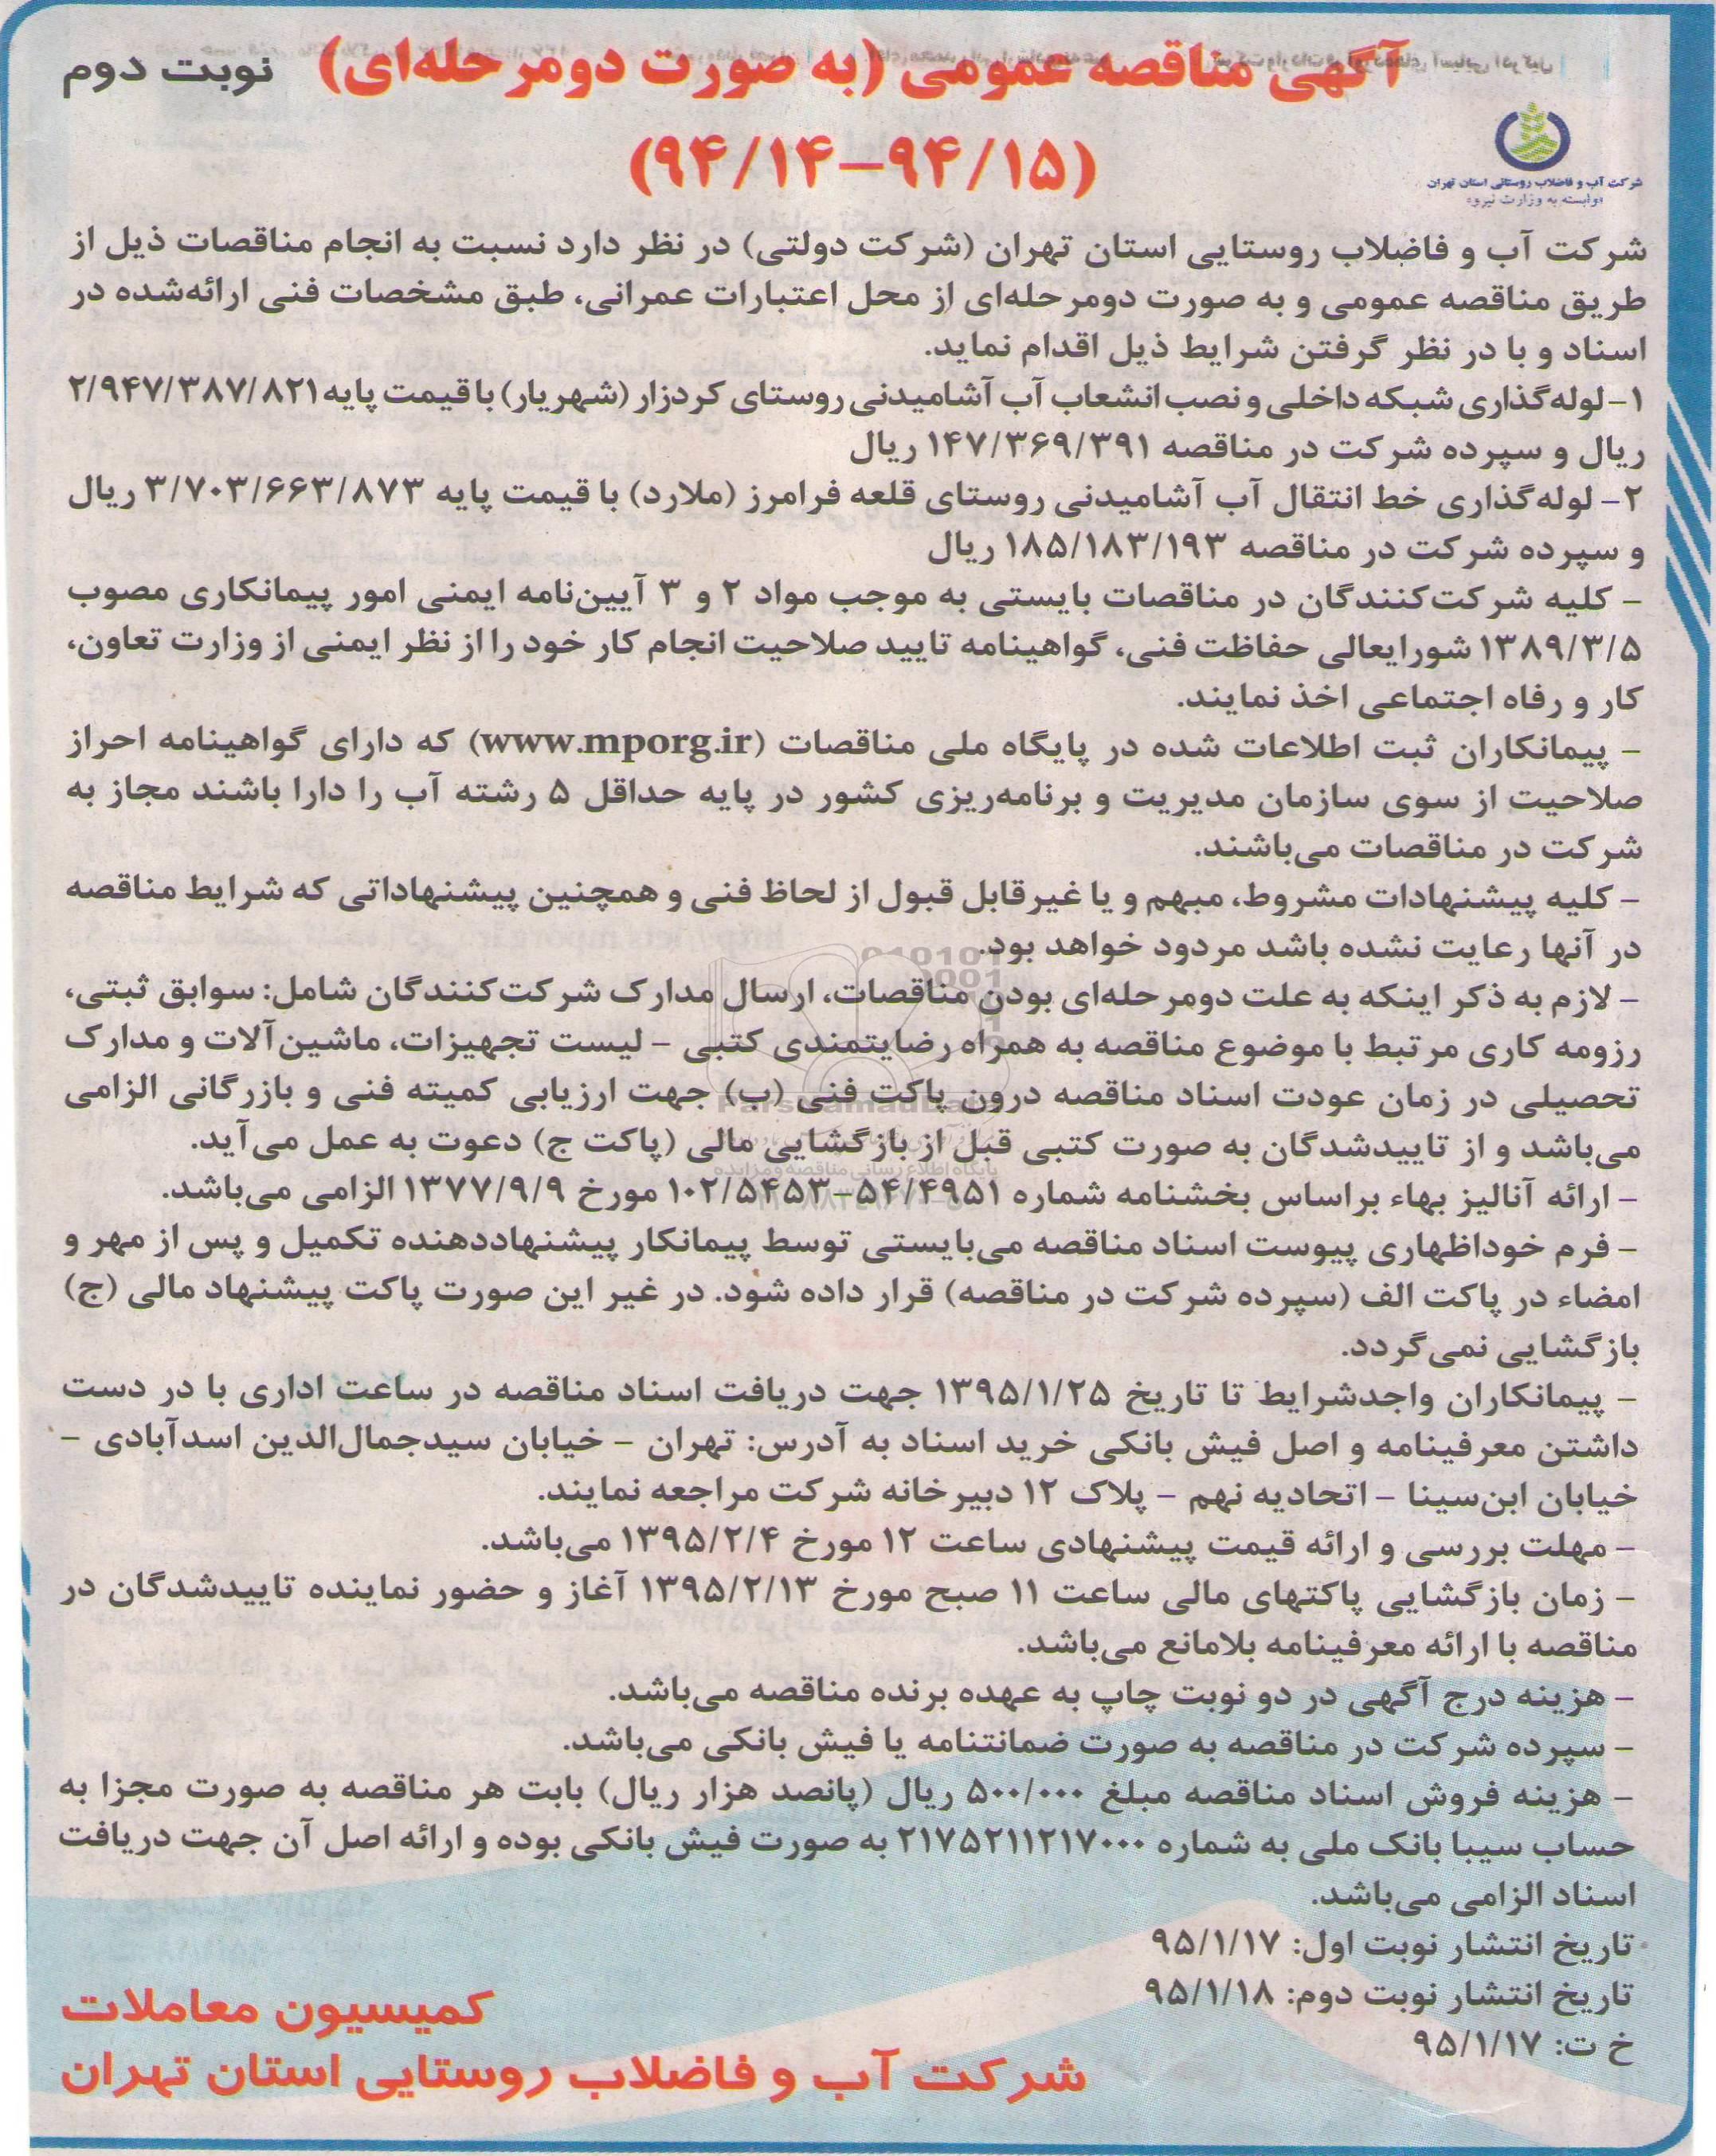 آگهی مناقصه عمومی (به صورت دومرحله‌ای) نوبت دوم
(۹۴/۱۴-۹۴/۱۵)
شرکت آب و فاضلاب روستایی استان تهران
«وابسته به وزارت نیرو»
شرکت آب و فاضلاب روستایی استان تهران (شرکت دولتی) در نظر دارد نسبت به انجام مناقصات ذیل از
طریق مناقصه عمومی و به صورت دومرحله‌ای از محل اعتبارات عمرانی، طبق مشخصات فنی ارائه‌شده در
اسناد و با در نظر گرفتن شرایط ذیل اقدام نماید.
۱- لوله‌گذاری شبکه داخلی و نصب انشعاب آب آشامیدنی روستای کردزار (شهریار) با قیمت پایه ۲/۹۴۷/۳۸۷/۸۲۱
ریال و سپرده شرکت در مناقصه ۱۴۷/۳۶۹/۳۹۱ ریال
۲- لوله‌گذاری خط انتقال آب آشامیدنی روستای قلعه فرامرز (ملارد) با قیمت پایه ۳/۷۰۳/۶۶۳/۸۷۳ ریال
و سپرده شرکت در مناقصه ۱۸۵/۱۸۳/۱۹۳ ریال
- کلیه شرکت‌کنندگان در مناقصات بایستی به موجب مواد ۲ و ۳ آیین‌نامه ایمنی امور پیمانکاری مصوب
۱۳۸۹/۳/۵ شورایعالی حفاظت فنی، گواهینامه تایید صلاحیت انجام کار خود را از نظر ایمنی از وزارت تعاون،
کار و رفاه اجتماعی اخذ نمایند.
- پیمانکاران ثبت اطلاعات شده در پایگاه ملی مناقصات (www.mporg.ir) که دارای گواهینامه احراز
صلاحیت از سوی سازمان مدیریت و برنامه‌ریزی کشور در پایه حداقل ۵ رشته آب را دارا باشند مجاز به
شرکت در مناقصات می‌باشند.
- کلیه پیشنهادات مشروط، مبهم و یا غیرقابل قبول از لحاظ فنی و همچنین پیشنهاداتی که شرایط مناقصه
در آنها رعایت نشده باشد مردود خواهد بود.
- لازم به ذکر اینکه به علت دومرحله‌ای بودن مناقصات، ارسال مدارک شرکت‌کنندگان شامل: سوابق ثبتی،
رزومه کاری مرتبط با موضوع مناقصه به همراه رضایتمندی کتبی - لیست تجهیزات، ماشین‌آلات و مدارک
تحصیلی در زمان عودت اسناد مناقصه درون پاکت فنی (ب) جهت ارزیابی کمیته فنی و بازرگانی الزامی
می‌باشد و از تاییدشدگان به صورت کتبی قبل از بازگشایی مالی (پاکت ج) دعوت به عمل می‌آید.
- ارائه آنالیز بهاء براساس بخشنامه شماره ۱۰۲/۵۴۵۳-۵۴/۴۹۵۱ مورخ ۱۳۷۷/۹/۹ الزامی می‌باشد.
- فرم خوداظهاری پیوست اسناد مناقصه می‌بایستی توسط پیمانکار پیشنهاددهنده تکمیل و پس از مهر و
امضاء در پاکت الف (سپرده شرکت در مناقصه) قرار داده شود. در غیر این صورت پاکت پیشنهاد مالی (ج)
بازگشایی نمی‌گردد.
- پیمانکاران واجدشرایط تا تاریخ ۱۳۹۵/۱/۲۵ جهت دریافت اسناد مناقصه در ساعت اداری با در دست
داشتن معرفینامه و اصل فیش بانکی خرید اسناد به آدرس: تهران - خیابان سیدجمال‌الدین اسدآبادی -
خیابان ابن‌سینا - اتحادیه نهم - پلاک ۱۲ دبیرخانه شرکت مراجعه نمایند.
- مهلت بررسی و ارائه قیمت پیشنهادی ساعت ۱۲ مورخ ۱۳۹۵/۲/۴ می‌باشد.
- زمان بازگشایی پاکتهای مالی ساعت ۱۱ صبح مورخ ۱۳۹۵/۲/۱۳ آغاز و حضور نماینده تاییدشدگان در
مناقصه با ارائه معرفینامه بلامانع می‌باشد.
- هزینه درج آگهی در دو نوبت چاپ به عهده برنده مناقصه می‌باشد.
- سپرده شرکت در مناقصه به صورت ضمانتنامه یا فیش بانکی می‌باشد.
- هزینه فروش اسناد مناقصه مبلغ ۵۰۰/۰۰۰ ریال (پانصد هزار ریال) بابت هر مناقصه به صورت مجزا به
حساب سیبا بانک ملی به شماره ۲۱۷۵۲۱۱۲۱۷۰۰۰ به صورت فیش بانکی بوده و ارائه اصل آن جهت دریافت
اسناد الزامی می‌باشد.
تاریخ انتشار نوبت اول: ۹۵/۱/۱۷
تاریخ انتشار نوبت دوم: ۹۵/۱/۱۸
خ ت: ۹۵/۱/۱۷
کمیسیون معاملات
شرکت آب و فاضلاب روستایی استان تهران